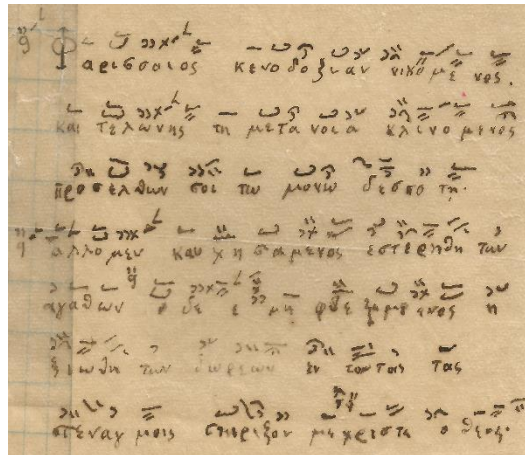 Φαρισσαιος κενοδοξιαν νικομενος.
και τελωνης τη μετανοια κλινομενος
προσελθων σοι τω μονω δεσποτη.
αλλομεν καυχησαμενος εστερηθη των
αγαθων ο δε μη η
ξιωθη των δωρεων εν τας
στεναγμοις με χριστε ο θεος.